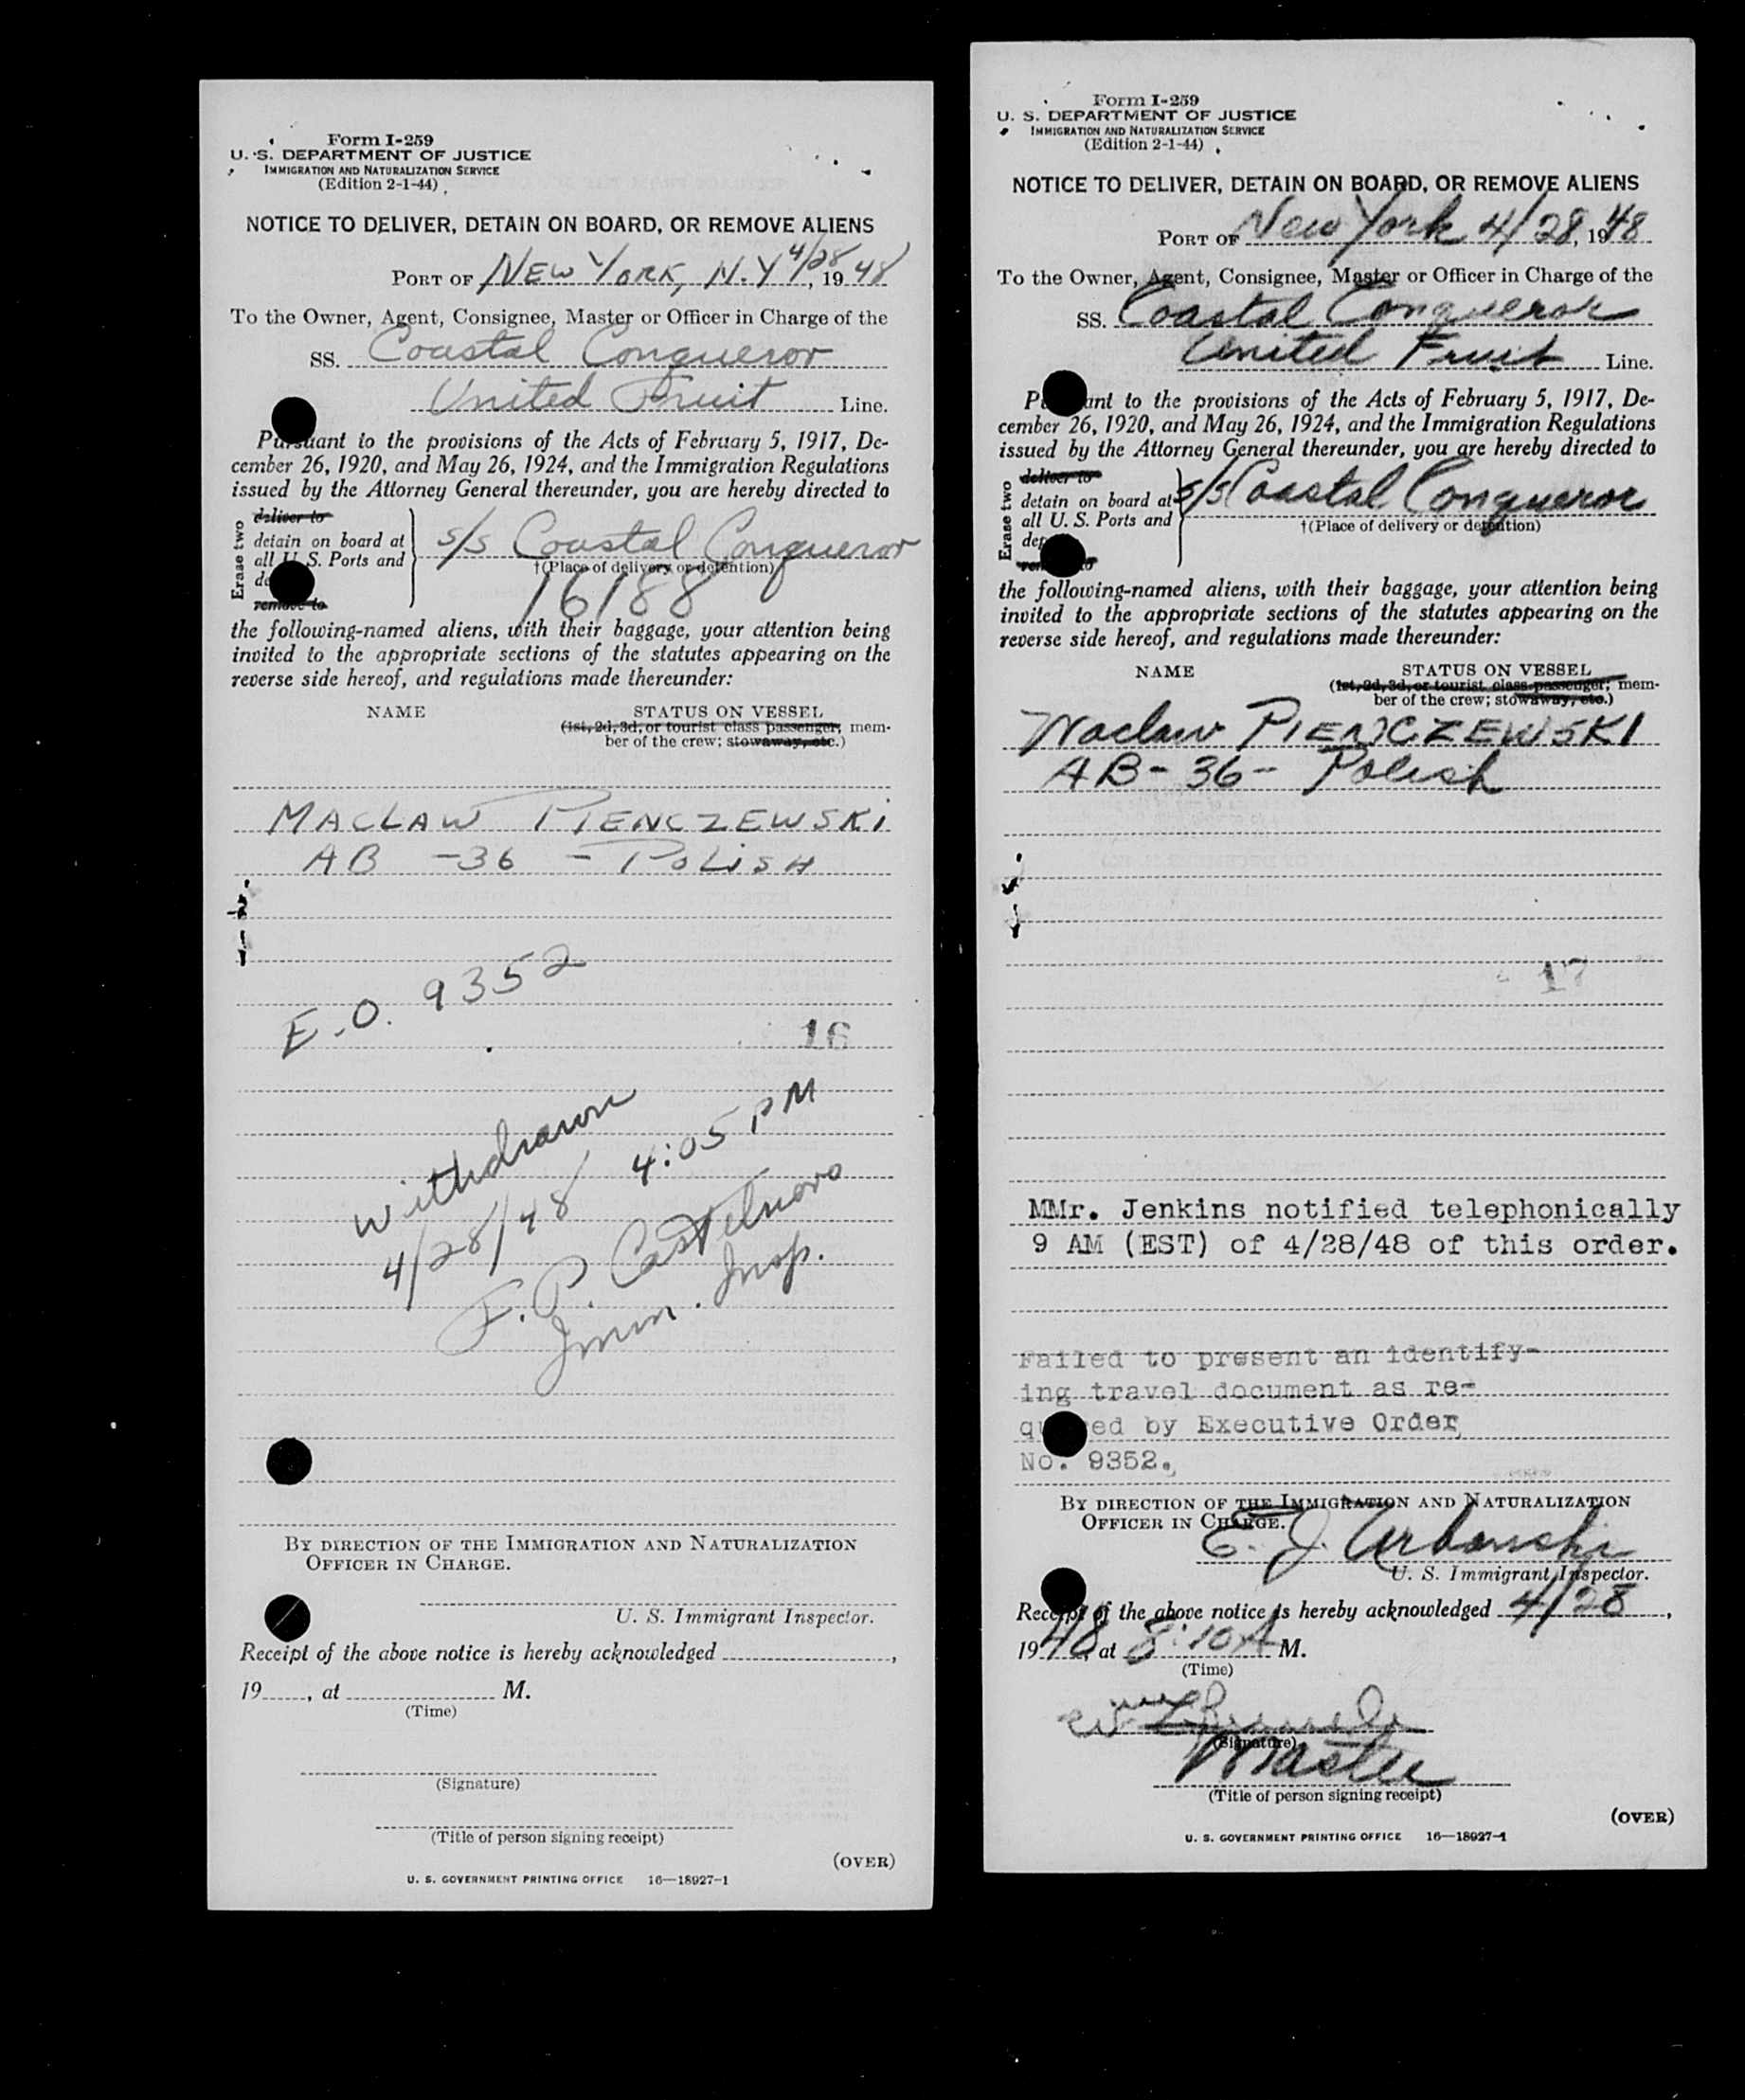 Form I-259
U. S. DEPARTMENT OF JUSTICE
IMMIGRATION AND NATURALIZATION SERVICE
(Edition 2-1-44)
NOTICE TO DELIVER, DETAIN ON BOARD, OR REMOVE ALIENS
PORT OF NEW YORK, N.Y 4/28, 1948
To the Owner, Agent, Consignee, Master or Officer in Charge of the
SS. Coastal Conqueror
United Fruit Line.
Pursuant to the provisions of the Acts of February 5, 1917, De-
cember 26, 1920, and May 26, 1924, and the Immigration Regulations
issued by the Attorney General thereunder, you are hereby directed to
Erase two
deliver to
detain on board at
all U. S. Ports and
de
remove to
s/s Coastal Conqueror
†(Place of delivery or detention)
16188
the following-named aliens, with their baggage, your attention being
invited to the appropriate sections of the statutes appearing on the
reverse side hereof, and regulations made thereunder:
NAME STATUS ON VESSEL
(1st, 2d, 3d, or tourist class passenger; mem-
ber of the crew; stowaway, etc.)
MACLAW PIENCZEWSKI
AB - 36 - POLISH
E.O. 9352
16
withdrawn
4/28/48 4:05 PM
F.P. Castelnovo
Imm. Insp.
BY DIRECTION OF THE IMMIGRATION AND NATURALIZATION
OFFICER IN CHARGE.
U. S. Immigrant Inspector.
Receipt of the above notice is hereby acknowledged ,
19 , at M.
(Time)
(Signature)
(Title of person signing receipt)
(OVER)
U. S. GOVERNMENT PRINTING OFFICE 16—18927-1
Form I-259
U. S. DEPARTMENT OF JUSTICE
IMMIGRATION AND NATURALIZATION SERVICE
(Edition 2-1-44)
NOTICE TO DELIVER, DETAIN ON BOARD, OR REMOVE ALIENS
PORT OF New York 4/28, 1948
To the Owner, Agent, Consignee, Master or Officer in Charge of the
SS. Coastal Conqueror
United Fruit Line.
P ant to the provisions of the Acts of February 5, 1917, De-
cember 26, 1920, and May 26, 1924, and the Immigration Regulations
issued by the Attorney General thereunder, you are hereby directed to
Erase two
deliver to
detain on board at
all U. S. Ports and
de
remove to
s/s Coastal Conqueror
†(Place of delivery or detention)
the following-named aliens, with their baggage, your attention being
invited to the appropriate sections of the statutes appearing on the
reverse side hereof, and regulations made thereunder:
NAME STATUS ON VESSEL
(1st, 2d, 3d, or tourist class passenger; mem-
ber of the crew; stowaway, etc.)
Waclaw PIENCZEWSKI
AB - 36 - Polish
17
MMr. Jenkins notified telephonically
9 AM (EST) of 4/28/48 of this order.
Failed to present an identify-
ing travel document as re-
qu ed by Executive Order
No. 9352.
BY DIRECTION OF THE IMMIGRATION AND NATURALIZATION
OFFICER IN CHARGE.
E. J. Urbanski
U. S. Immigrant Inspector.
Receipt of the above notice is hereby acknowledged 4/28,
1948, at 8:10 A M.
(Time)
(Signature)
Master
(Title of person signing receipt)
(OVER)
U. S. GOVERNMENT PRINTING OFFICE 16—18927-1